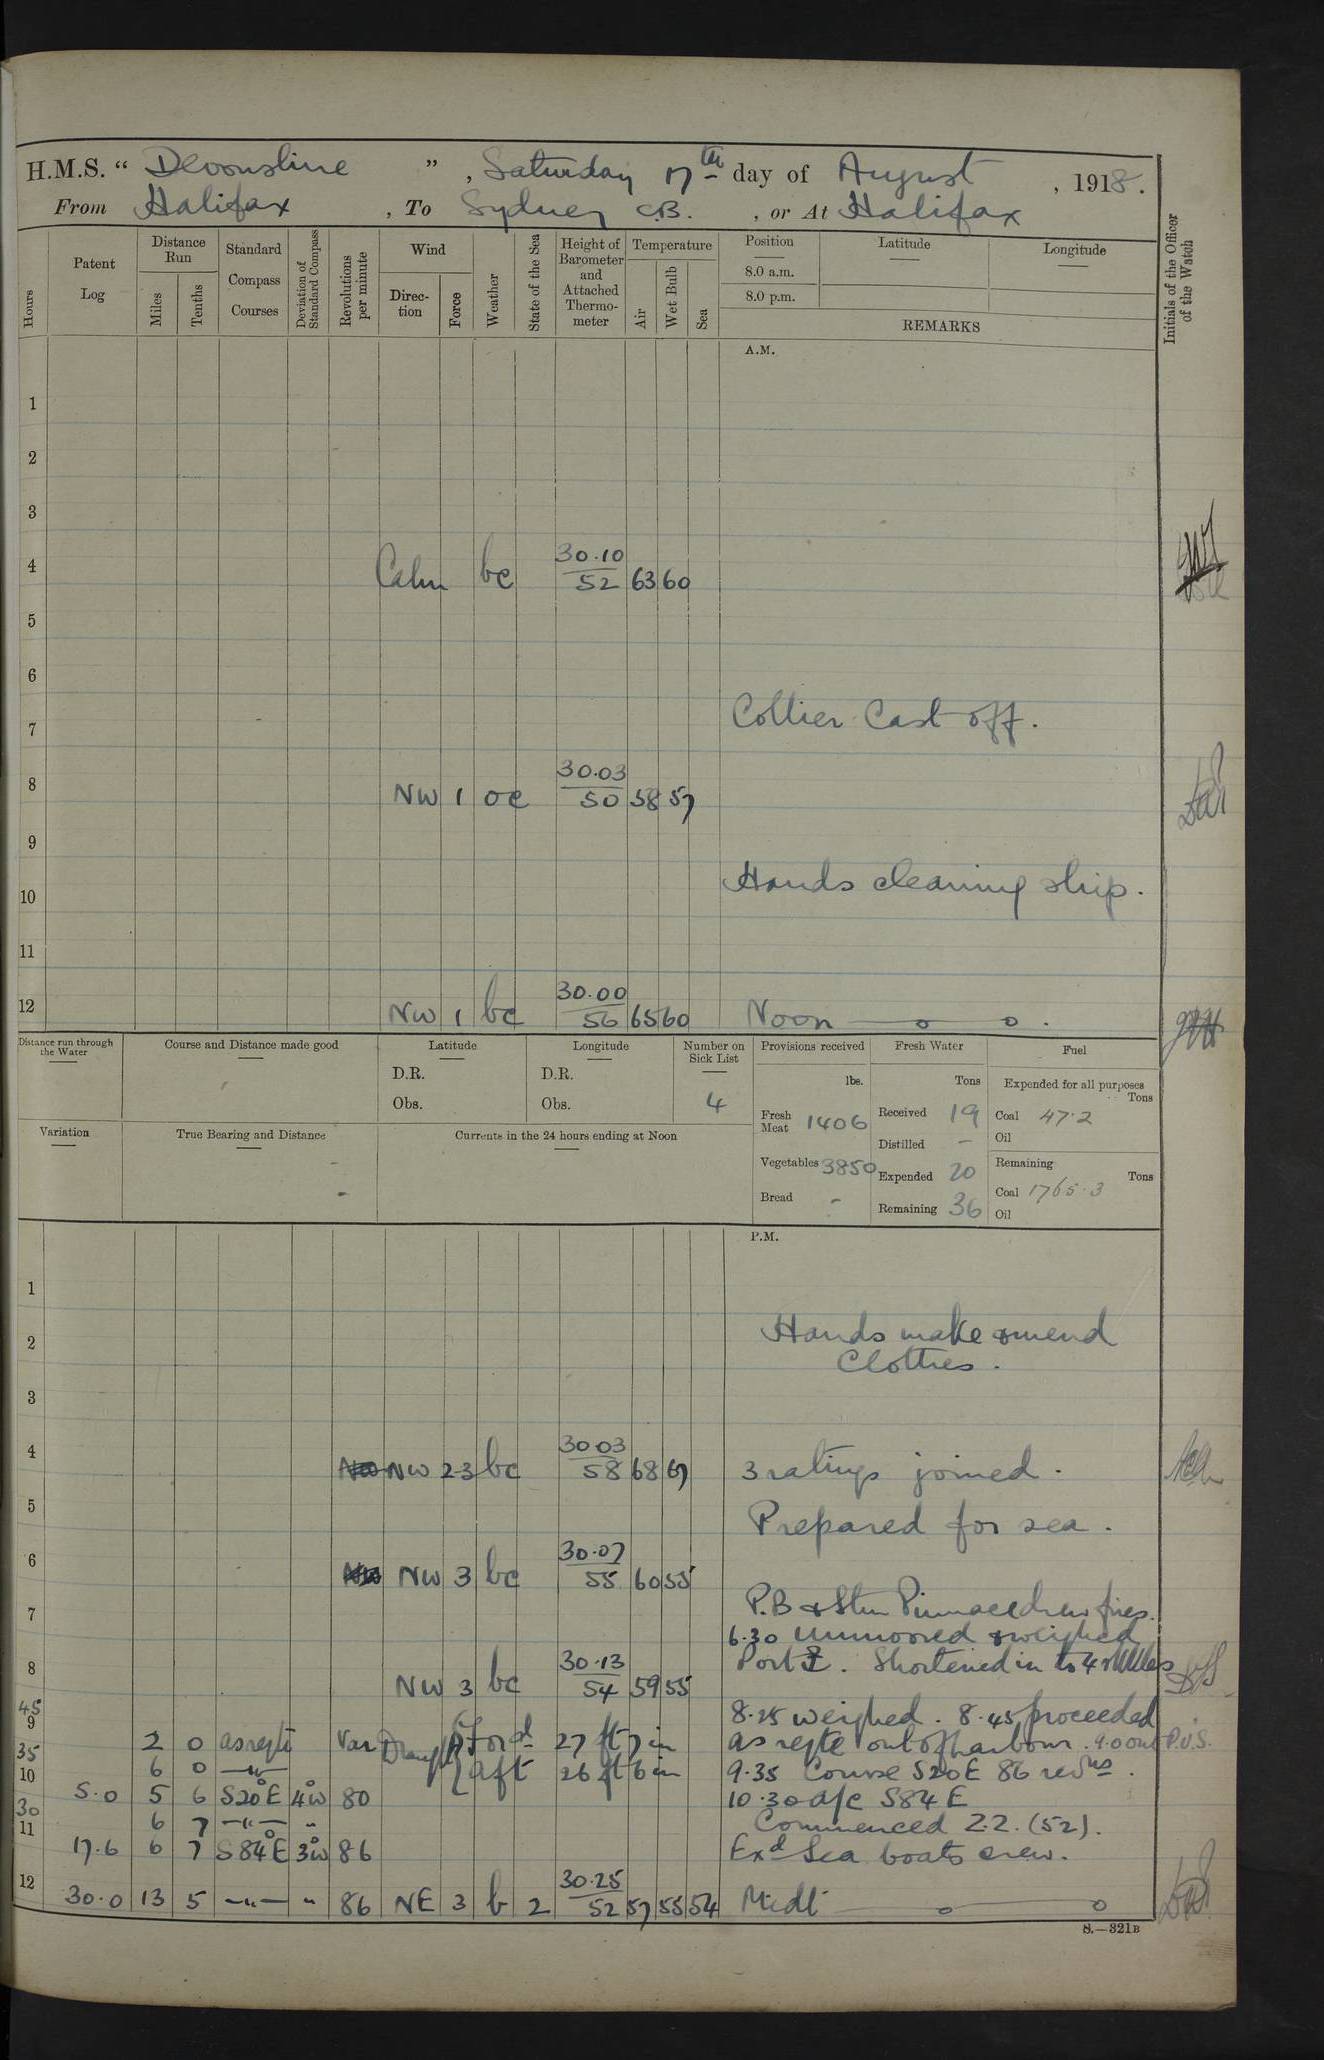 H.M.S. " Devonshire ", Saturday 17th day of August, 1918.
From Halifax, To Sydney C.B., or At Halifax
Hours
Patent Log
Distance Run
Miles
Tenths
Standard Compass Courses
Deviation of Standard Compass
Revolutions per minute
Wind
Direction
Force
Weather
State of the Sea
Height of Barometer and Attached Thermometer
Temperature
Air
Wet Bulb
Sea
Position
Latitude
Longitude
8.0 a.m.
8.0 p.m.
REMARKS
Initials of the Officer of the Watch
A.M.
1
2
3
4 Calm bc 30.10 52 63 60
5
6
7 Collier Cast off.
8 NW 1 oc 30.03 50 58 57
9
10 Hands cleaning ship.
11
12 NW 1 bc 30.00 56 65 60 Noon
Distance run through the Water
Course and Distance made good
Latitude
D.R.
Obs.
Longitude
D.R.
Obs.
Number on Sick List
4
Provisions received
lbs.
Fresh Meat 1406
Vegetables 3850
Bread -
Fresh Water
Tons
Received 19
Distilled -
Expended 20
Remaining 36
Fuel
Expended for all purposes
Tons
Coal 47.2
Oil
Remaining
Tons
Coal 1765.3
Oil
Variation
True Bearing and Distance
Currents in the 24 hours ending at Noon
P.M.
1
2 Hands make & mend
Clothes.
3
4 NW 2-3 bc 30.03 58 68 61 3 ratings joined.
5 Prepared for sea.
6 NW 3 bc 30.07 55 60 55
7 P.B & Stm Pinnace drew fires.
6.30 Unmoored & weighed
8 NW 3 bc 30.13 54 59 55 Port. Shortened in to 4 shackles
45 8.25 weighed. 8.45 proceeded
9 2 0 as reqte Var Draught Ford 27 ft 7 in as reqte out of harbour. 9.0 out P.V.S.
35 6 0 -"- aft 26 ft 6 in 9.35 Course S20E 86 revns.
10 5.0 5 6 S20°E 4°W 80 10.30 a/c S84E
30 6 7 -"- " Commenced Z.Z. (52).
11 17.6 6 7 S84°E 3°W 86 Exd Sea boats crew.
12 30.0 13 5 -"- " 86 NE 3 b 2 30.25 52 57 55 54 Midt
S.—321B